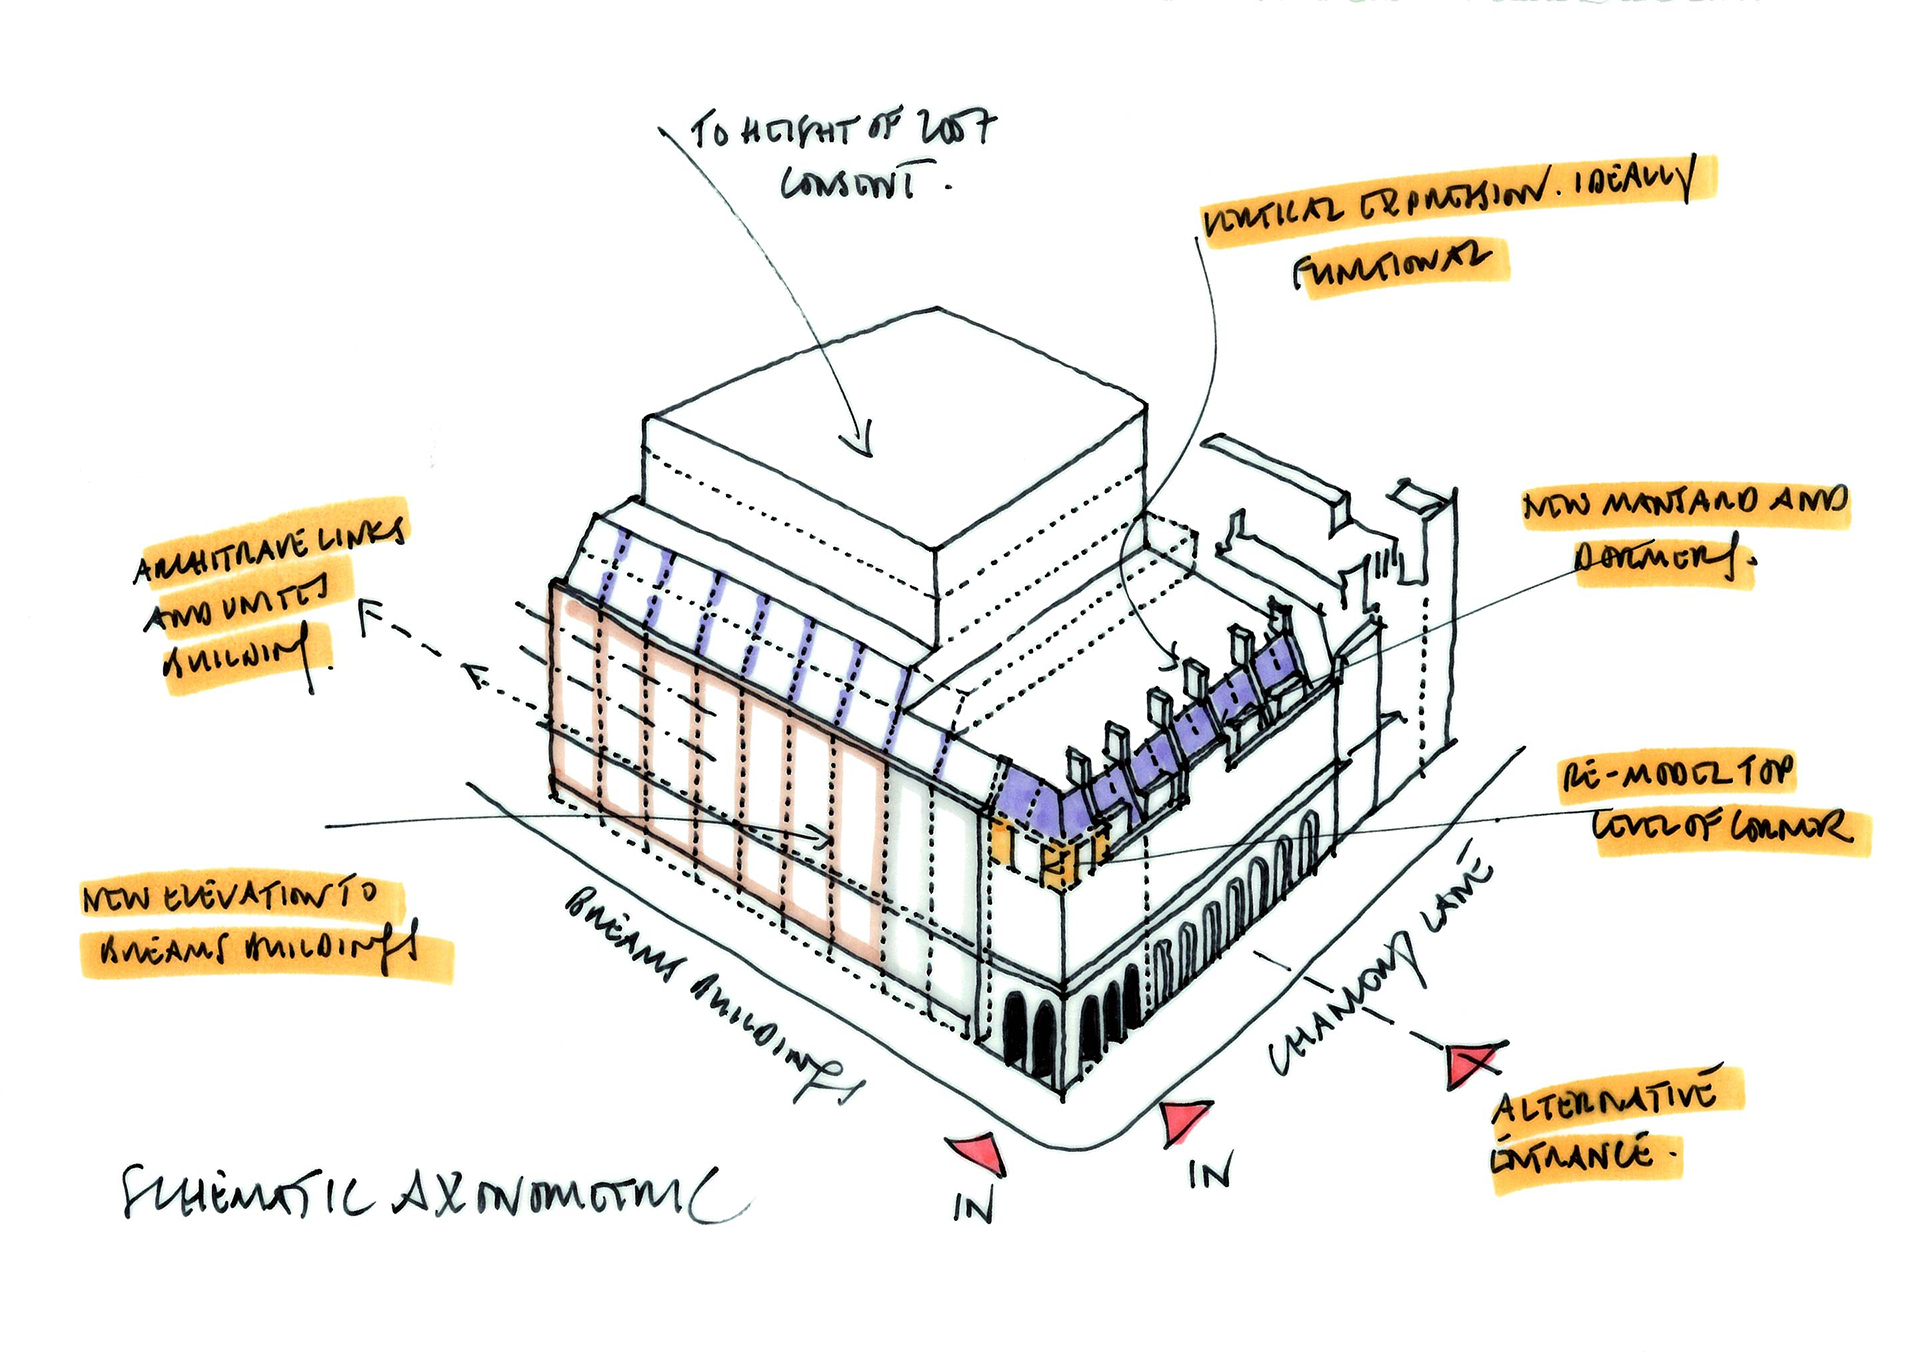 TO HEIGHT OF 2007
CONSENT.
VERTICAL EXPRESSION. IDEALLY
FUNCTIONAL
ARCHITRAVE LINKS
AND UNITES
BUILDING.
NEW MANSARD AND
DORMERS.
RE-MODEL TOP
LEVEL OF CORNER
NEW ELEVATION TO
BREAMS BUILDINGS
BREAMS BUILDINGS
CHANCERY LANE
ALTERNATIVE
ENTRANCE.
IN
IN
SCHEMATIC AXONOMETRIC